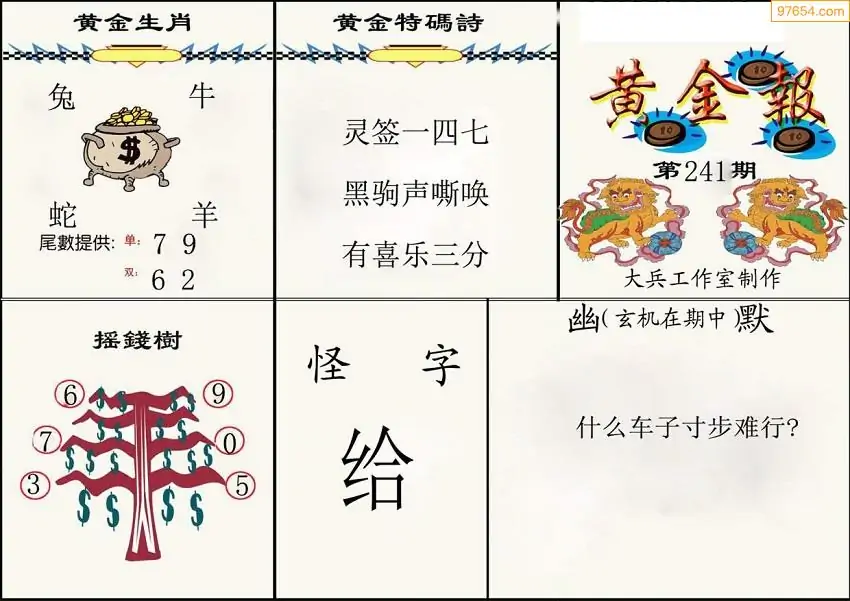 97654.com
黄金生肖
兔 牛
$
蛇 羊
尾數提供: 单: 7 9
双: 6 2
黄金特碼詩
灵签一四七
黑驹声嘶唤
有喜乐三分
黄金報
10
10
10
第241期
大兵工作室制作
摇錢樹
6 9
7 0
3 5
$ $ $ $
$ $ $ $
$ $ $ $ $ $
$ $ $ $
怪 字
给
幽(玄机在期中)默
什么车子寸步难行?